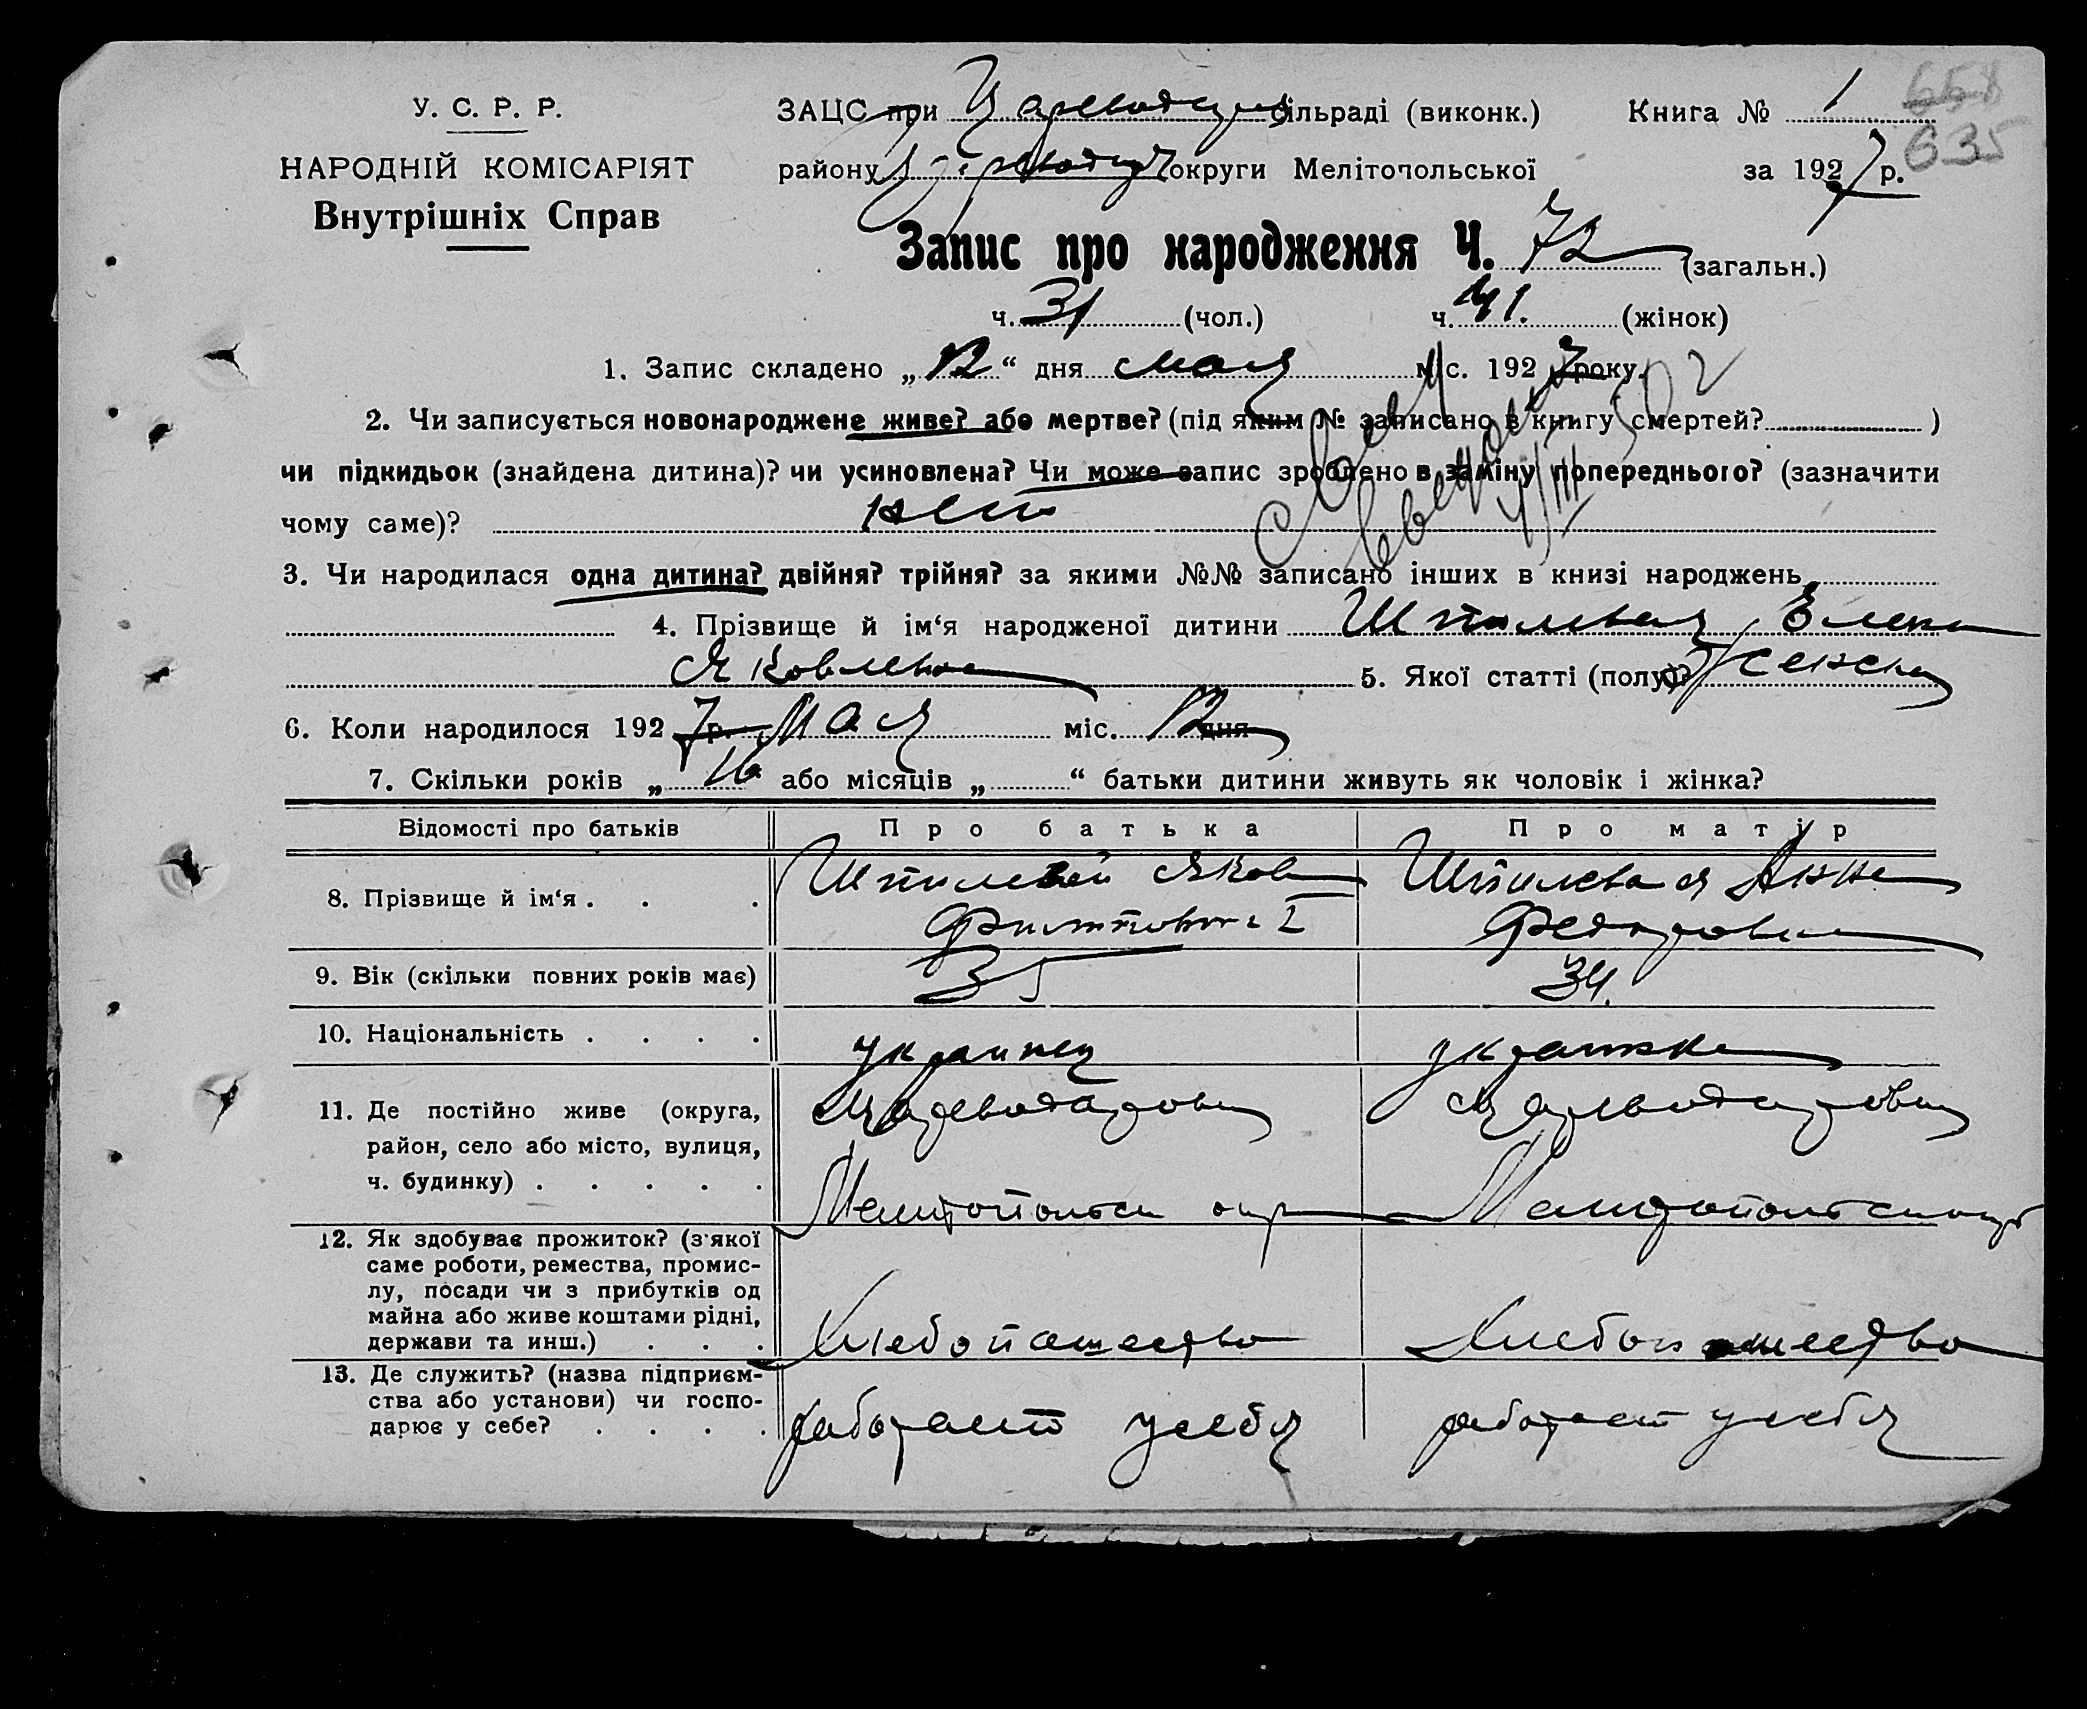 У. С. Р. Р.
НАРОДНІЙ КОМІСАРІЯТ
Внутрішніх Справ
ЗАЦС при сільраді (виконк.) Книга № 1
658
635
району округи Мелітопольської за 1927 р.
Запис про народження Ч. 72 (загальн.)
ч. 31 (чол.) ч. 41. (жінок)
1. Запис складено „12“ дня мая міс. 1927 року.
2. Чи записується новонароджене живе? або мертве? (під яким № записано в книгу смертей? )
чи підкидьок (знайдена дитина)? чи усиновлена? Чи може запис зроблено в заміну попереднього? (зазначити
чому саме)? нет
3. Чи народилася одна дитина? двійня? трійня? за якими №№ записано інших в книзі народжень
4. Прізвище й ім‘я народженої дитини Шпилевая Елена
Яковлевна 5. Якої статті (полу)? женск
6. Коли народилося 1927 р. мая міс. 12 дня
7. Скільки років „16 або місяців „ “ батьки дитини живуть як чоловік і жінка?
Відомості про батьків Про батька Про матір
8. Прізвище й ім‘я . . . Шпилевой Яков Шпилевая Анна
Филиппович I Федоровна
9. Вік (скільки повних років має) 35 34.
10. Національність . . . . украинец украинка
11. Де постійно живе (округа,
район, село або місто, вулиця,
ч. будинку) . . . . . Мелитопольск окр Мелитопольск окр
12. Як здобуває прожиток? (з‘якої
саме роботи, ремества, промис-
лу, посади чи з прибутків од
майна або живе коштами рідні,
держави та инш.) . . . Хлебопашество Хлебопашество
13. Де служить? (назва підприєм-
ства або установи) чи госпо-
дарює у себе? . . . . работает у себя работает у себя